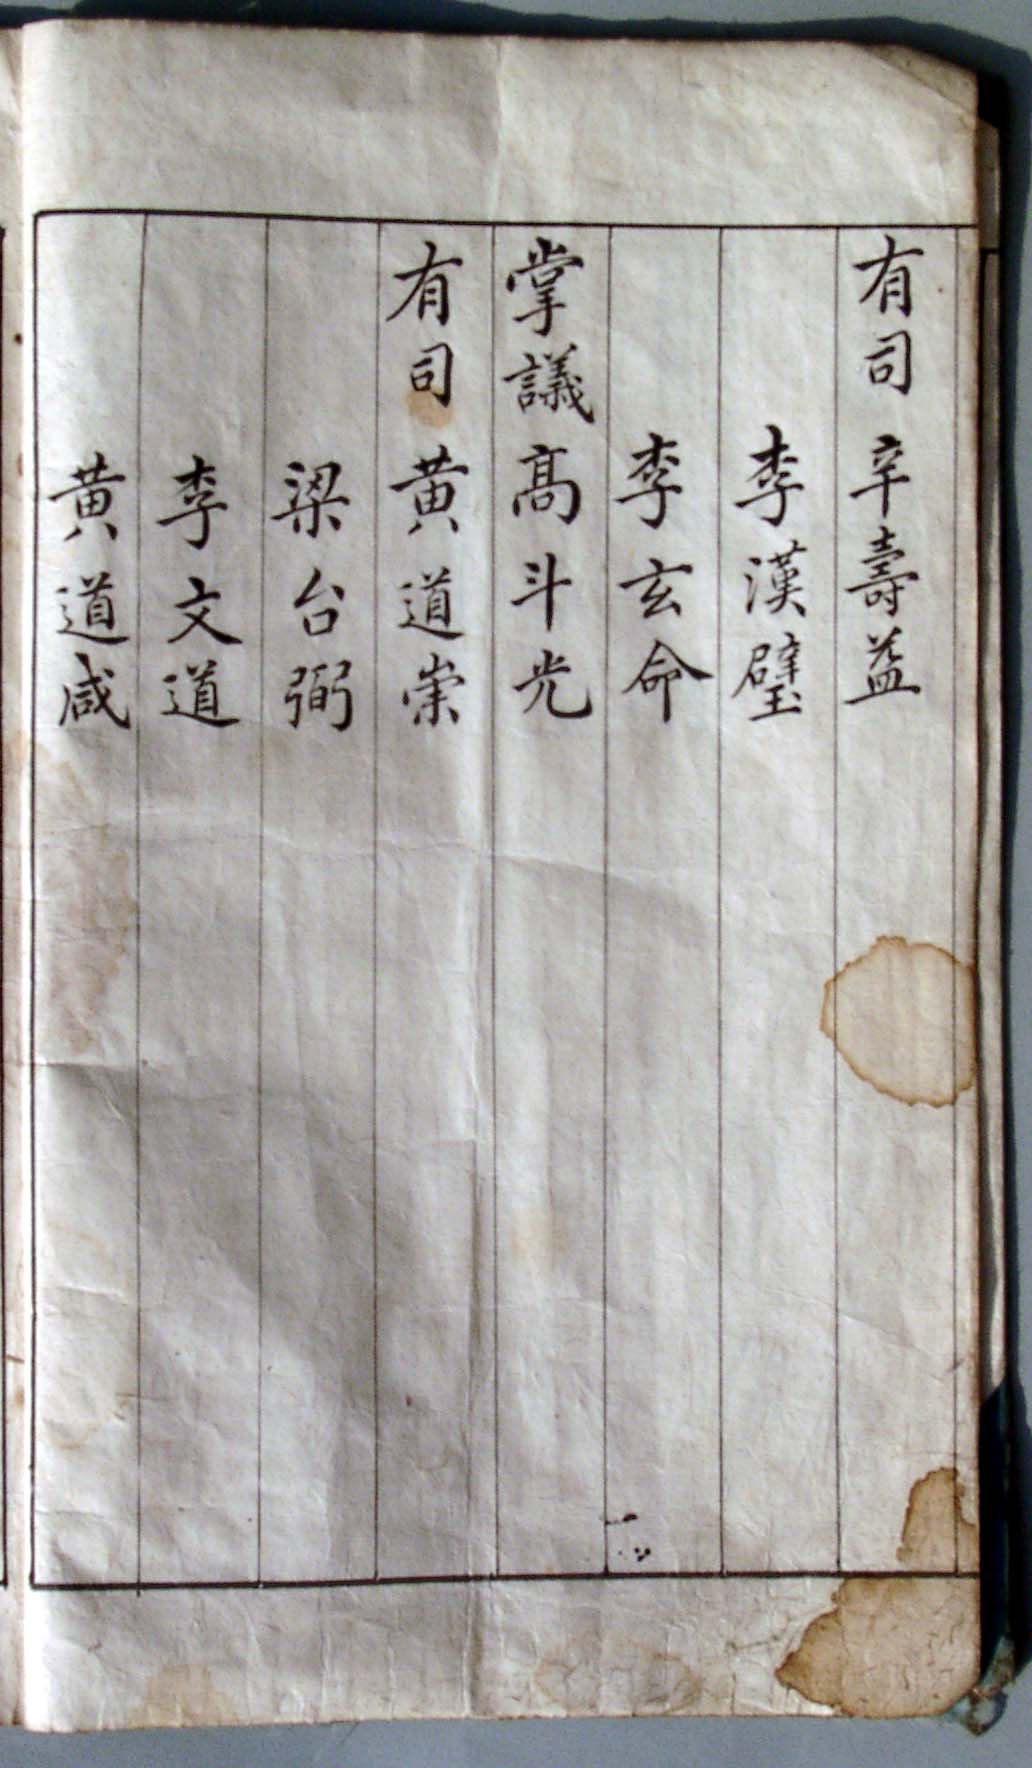 有司 辛壽益
李漢璧
李玄命
掌議 髙斗光
有司 黄道崇
梁台弼
李文道
黄道咸